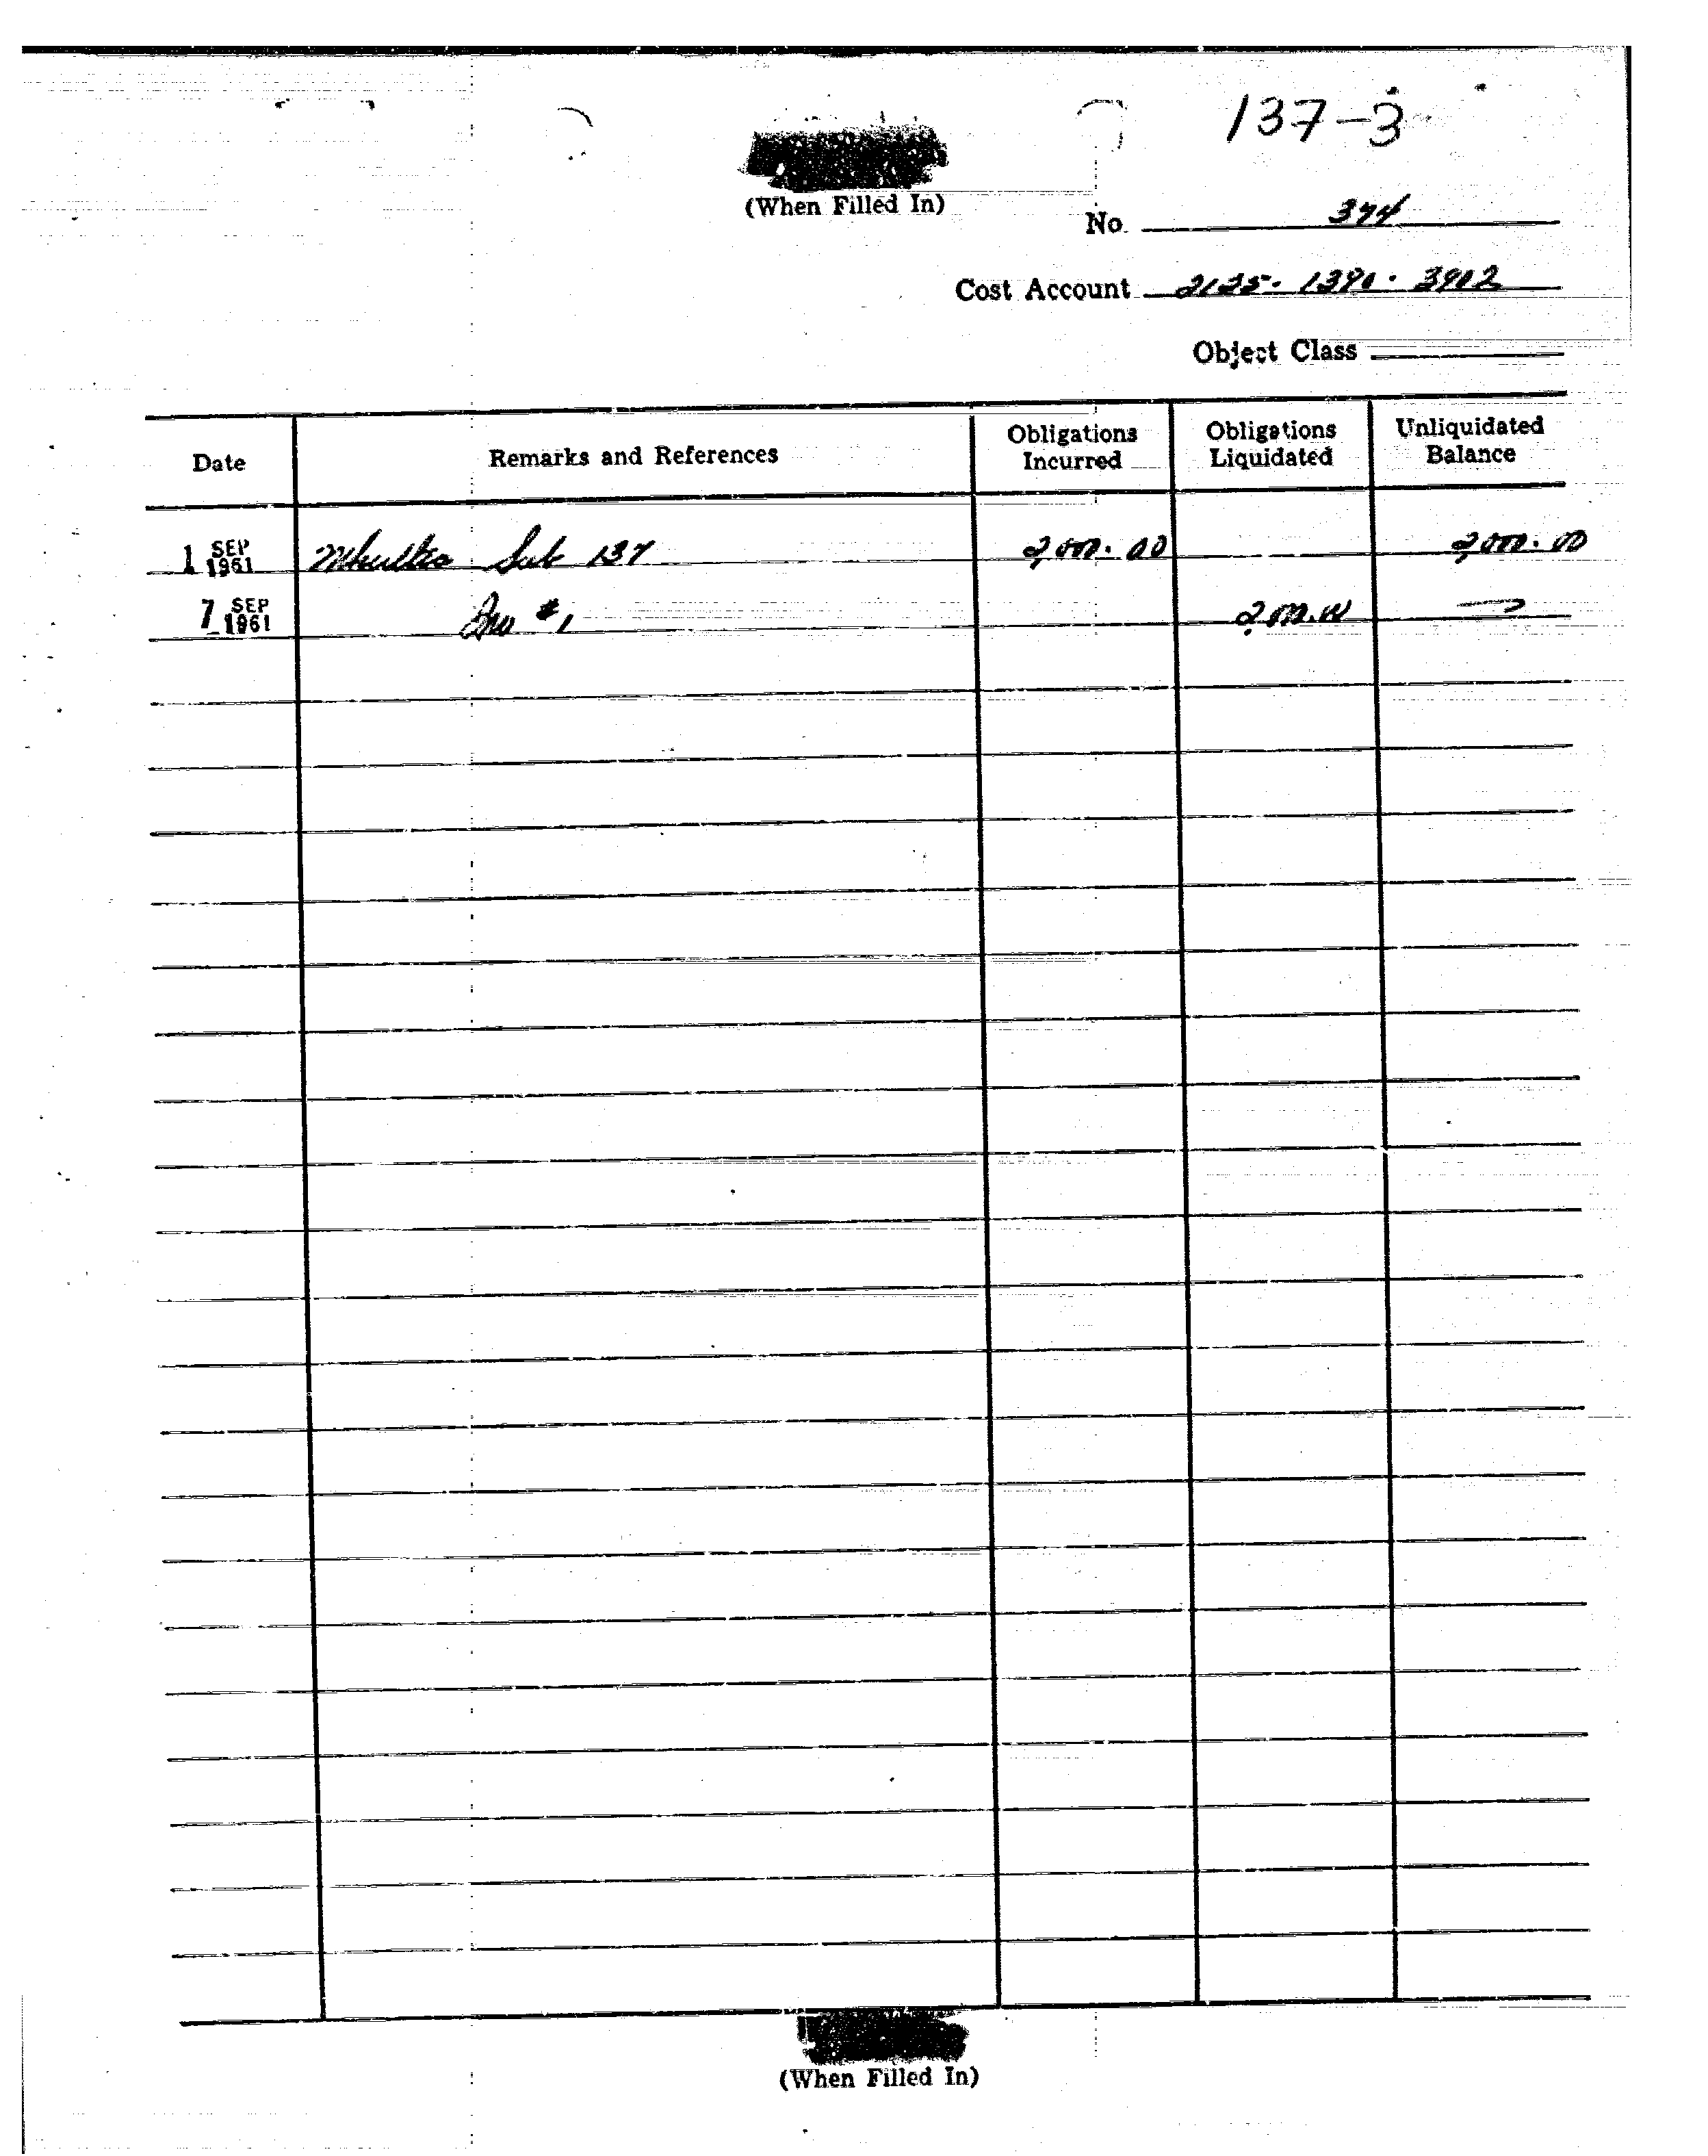 137-3
(When Filled In)
No. 374
Cost Account 2125-1390-3902
Object Class
Date Remarks and References Obligations Incurred Obligations Liquidated Unliquidated Balance
1 SEP 1961 Mkultra Sub 137 2,000.00 2,000.00
7 SEP 1961 Inv #1 2,000.00 —
(When Filled In)